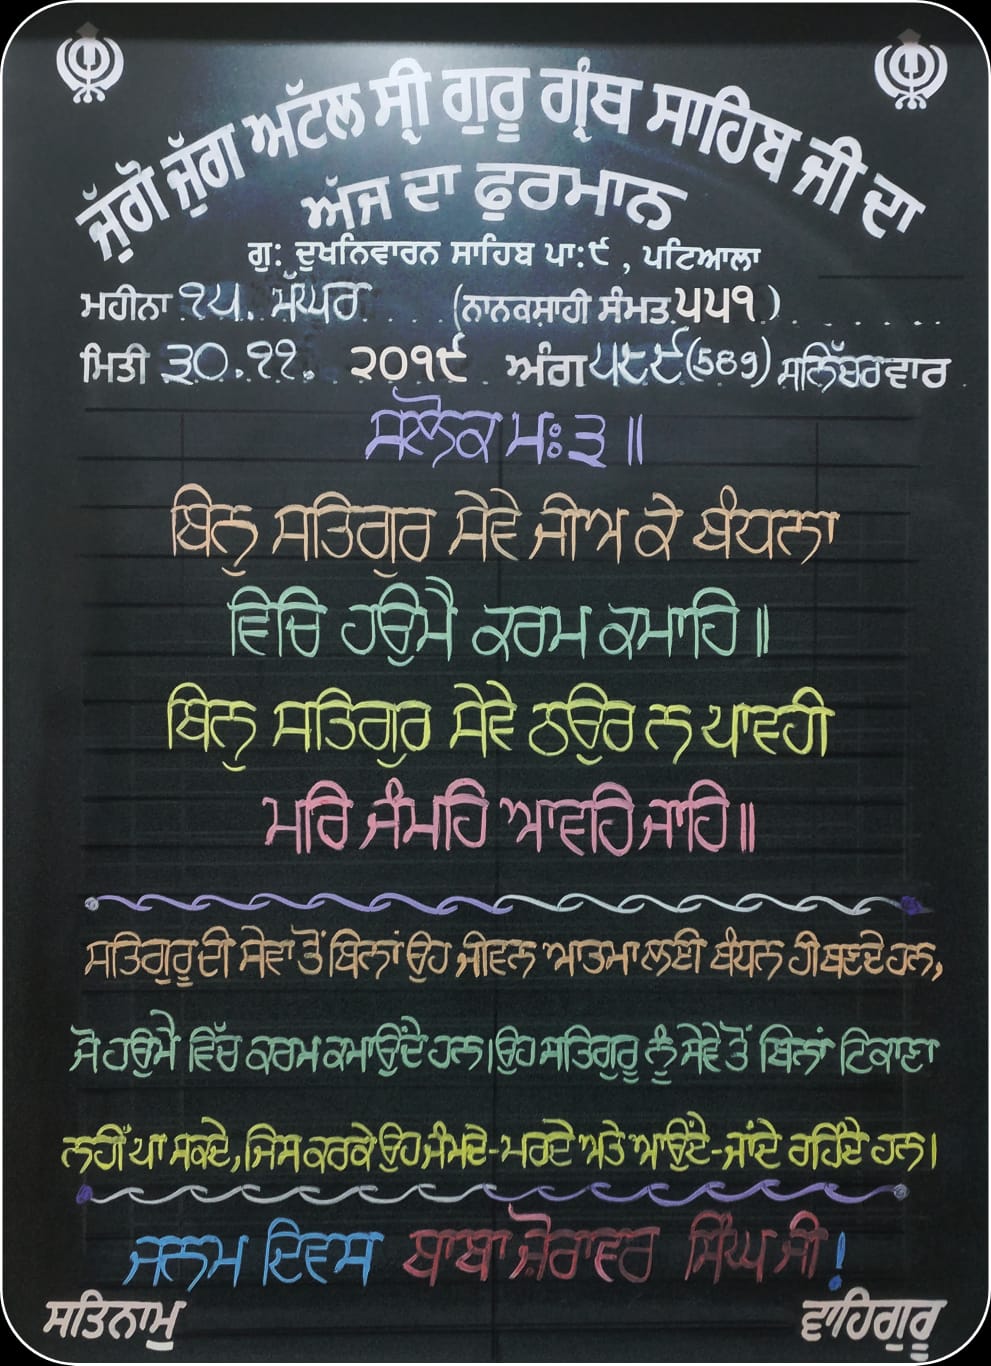 ਜੁੱਗੋ ਜੁੱਗ ਅਟੱਲ ਸ੍ਰੀ ਗੁਰੂ ਗ੍ਰੰਥ ਸਾਹਿਬ ਜੀ ਦਾ
ਅੱਜ ਦਾ ਫੁਰਮਾਨ
ਗੁ: ਦੁਖਨਿਵਾਰਨ ਸਾਹਿਬ ਪਾ:੯ , ਪਟਿਆਲਾ
ਮਹੀਨਾ ੧੫. ਮੱਘਰ (ਨਾਨਕਸ਼ਾਹੀ ਸੰਮਤ ੫੫੧)
ਮਿਤੀ ੩੦.੧੧. ੨੦੧੯ ਅੰਗ ੫੮੯(589) ਸ਼ਨਿੱਚਰਵਾਰ
ਸਲੋਕ ਮਃ ੩ ॥
ਬਿਨੁ ਸਤਿਗੁਰ ਸੇਵੇ ਜੀਅ ਕੇ ਬੰਧਨਾ
ਵਿਚਿ ਹਉਮੈ ਕਰਮ ਕਮਾਹਿ ॥
ਬਿਨੁ ਸਤਿਗੁਰ ਸੇਵੇ ਠਉਰ ਨ ਪਾਵਹੀ
ਮਰਿ ਜੰਮਹਿ ਆਵਹਿ ਜਾਹਿ ॥
ਸਤਿਗੁਰੂ ਦੀ ਸੇਵਾ ਤੋਂ ਬਿਨਾਂ ਉਹ ਜੀਵਨ ਆਤਮਾ ਲਈ ਬੰਧਨ ਹੀ ਬਣਦੇ ਹਨ,
ਜੋ ਹਉਮੈ ਵਿੱਚ ਕਰਮ ਕਮਾਉਂਦੇ ਹਨ। ਉਹ ਸਤਿਗੁਰੂ ਨੂੰ ਸੇਵੇ ਤੋਂ ਬਿਨਾਂ ਟਿਕਾਣਾ
ਨਹੀਂ ਪਾ ਸਕਦੇ, ਜਿਸ ਕਰਕੇ ਉਹ ਜੰਮਦੇ-ਮਰਦੇ ਅਤੇ ਆਉਂਦੇ-ਜਾਂਦੇ ਰਹਿੰਦੇ ਹਨ।
ਜਨਮ ਦਿਵਸ ਬਾਬਾ ਜ਼ੋਰਾਵਰ ਸਿੰਘ ਜੀ !
ਸਤਿਨਾਮੁ ਵਾਹਿਗੁਰੂ